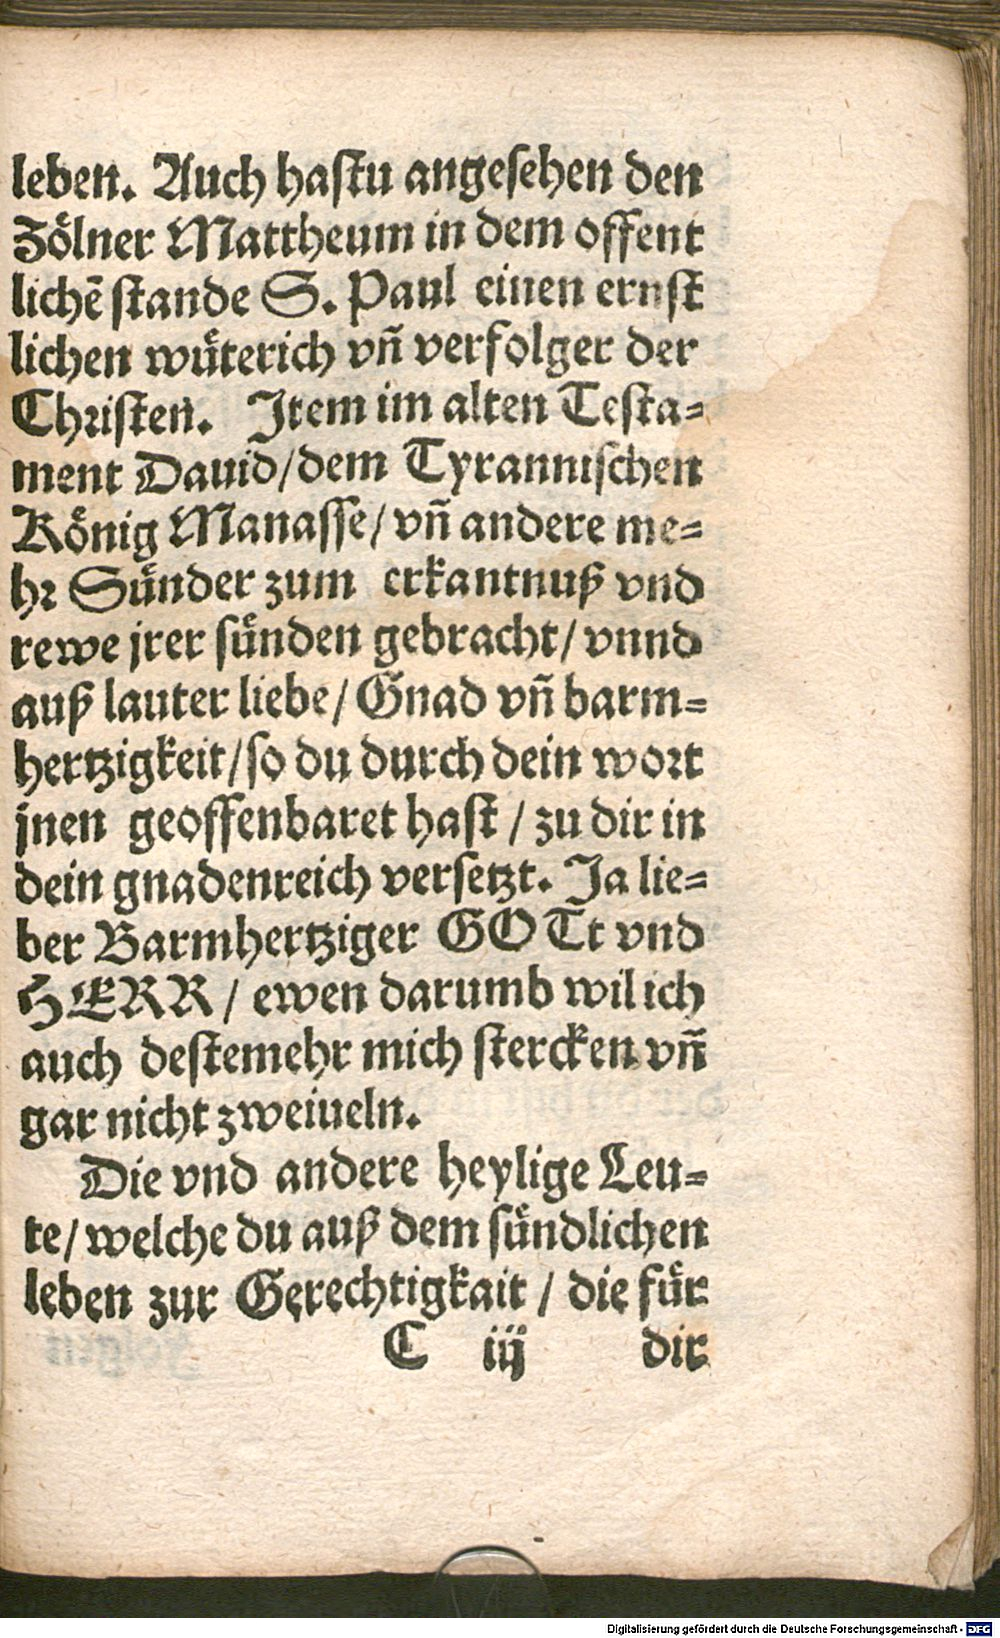 leben. Auch hastu angesehen den
Zölner Mattheum in dem offent
lichē stande S. Paul einen ernst
lichen wüterich vñ verfolger der
Christen. Item im alten Testa-
ment Dauid/dem Tyrannischen
König Manasse/vñ andere me-
hr Sünder zum erkantnuß vnd
rewe jrer sünden gebracht/vnnd
auß lauter liebe/Gnad vñ barm-
hertzigkeit/so du durch dein wort
jnen geoffenbaret hast/zu dir in
dein gnadenreich versetzt. Ja lie-
ber Barmhertziger GOTt vnd
HERR/ewen darumb wil ich
auch destemehr mich stercken vñ
gar nicht zweiueln.
Die vnd andere heylige Leu-
te/welche du auß dem sündlichen
leben zur Gerechtigkait/die für
C iij dir
Digitalisierung gefördert durch die Deutsche Forschungsgemeinschaft - DFG